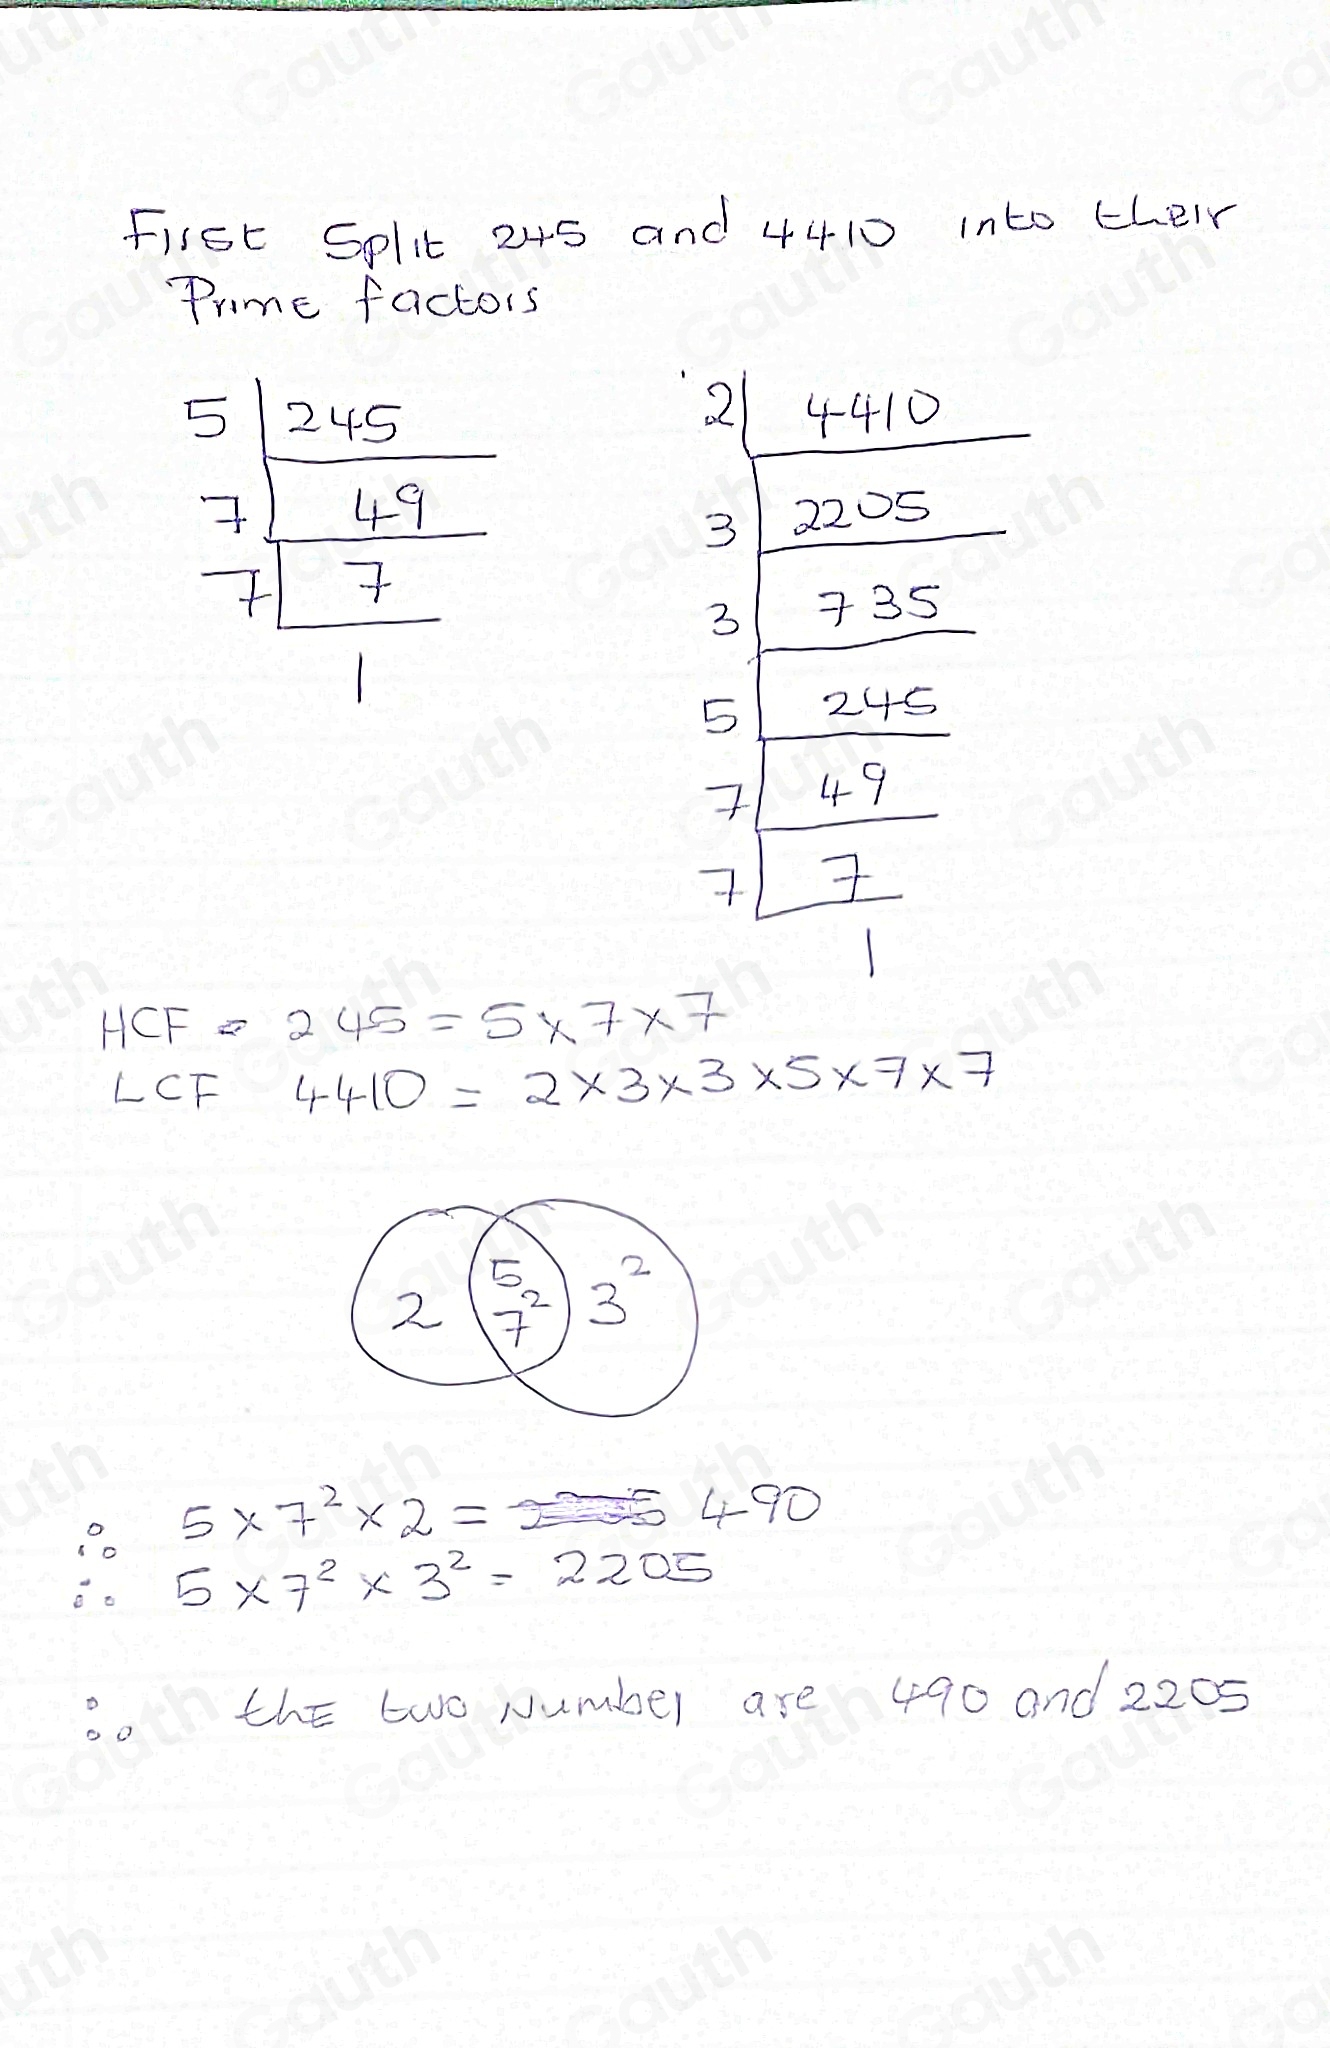 First Split 245 and 4410 into their
Prime factors
5 | 245
7 | 49
7 | 7
1
2 | 4410
3 | 2205
3 | 735
5 | 245
7 | 49
7 | 7
1
HCF = 245 = 5 × 7 × 7
LCF 4410 = 2 × 3 × 3 × 5 × 7 × 7
2 5 7² 3²
∴ 5 × 7² × 2 = 490
∴ 5 × 7² × 3² = 2205
∴ the two Number are 490 and 2205
Gauth